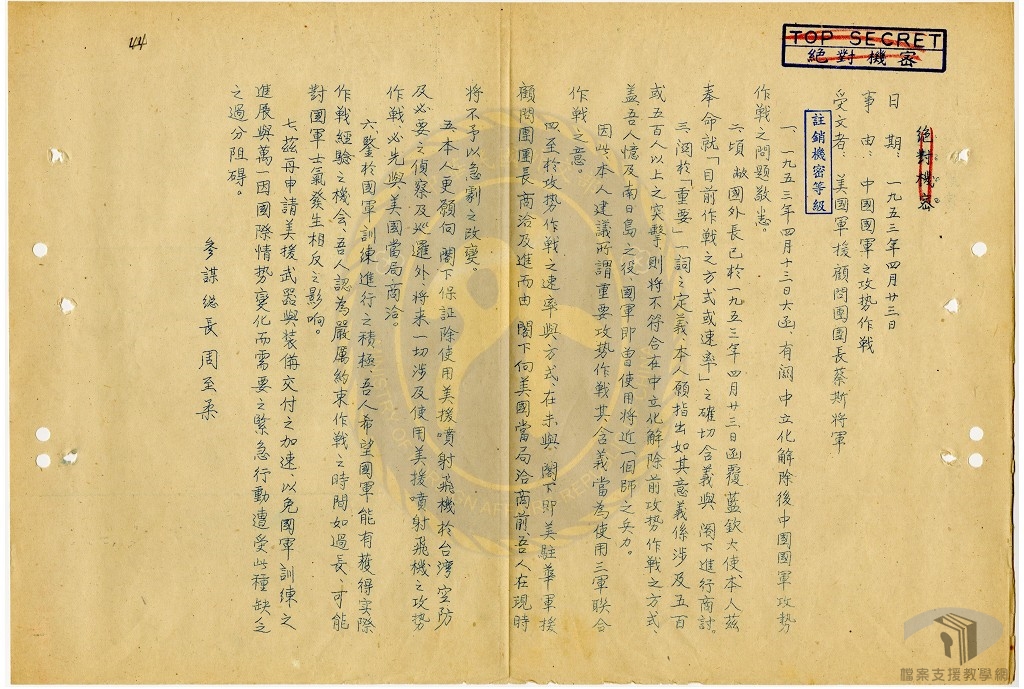 44
TOP SECRET
絕對機密
絕對機密
註銷機密等級
日　期：一九五三年四月廿三日
事　由：中國國軍之攻勢作戰
受文者：美國軍援顧問團團長蔡斯將軍
一、一九五三年四月十三日大函、有關中立化解除後中國國軍攻勢
作戰之問題敬悉。
二、頃　敝國外長已於一九五三年四月廿三日函覆藍欽大使、本人茲
奉命就「目前作戰之方式或速率」之確切含義與　閣下進行商討。
三、關於「重要」一詞之定義、本人願指出如其意義係涉及五百
或五百人以上之突擊、則將不符合在中立化解除前攻勢作戰之方式、
蓋吾人憶及南日島之役國軍即曾使用將近一個師之兵力。
因此、本人建議所謂重要攻勢作戰其含義當為使用三軍聯合
作戰之意。
四、至於攻勢作戰之速率與方式、在未與　閣下即美駐華軍援
顧問團團長商洽及進而由　閣下向美國當局洽商前吾人在現時
將不予以急劇之改變。
五、本人更願向　閣下保証除使用美援噴射飛機於台灣空防
及必要之偵察及巡邏外、將來一切涉及使用美援噴射飛機之攻勢
作戰必先與美國當局商洽。
六、鑒於國軍訓練進行之積極、吾人希望國軍能有獲得實際
作戰經驗之機会、吾人認為嚴厲約束作戰之時間如過長、可能
對國軍士氣發生相反之影响。
七、茲再申請美援武器與裝備交付之加速、以免國軍訓練之
進展與萬一因國際情勢變化而需要之緊急行動遭受此種缺乏
之過分阻碍。
參謀總長　周至柔
檔案支援教學網